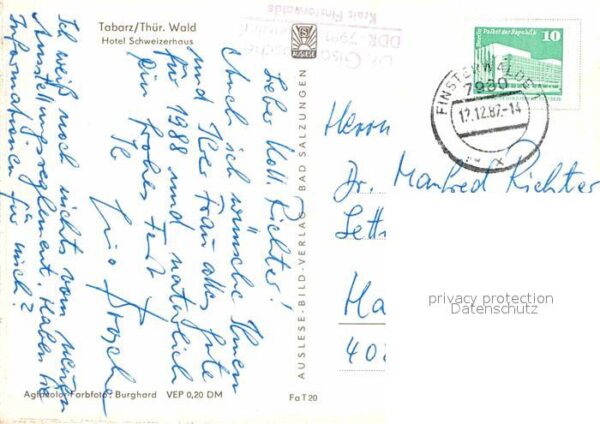 Tabarz/Thür. Wald
Hotel Schweizerhaus
AUSLESE
DDR-7981
Kreis Finsterwalde
Palast der Republik
10
FINSTERWALDE 1
7980
12.12.87.-14
Lieber Koll. Richter!
Auch ich wünsche Ihnen
und Ihrer Frau alles Gute
für 1988 und natürlich
Ein frohes Fest
Ihr
Ich weiß noch nichts vom neuen
Ausstellungsreglement. Haben Sie
Informationen
für mich?
AUSLESE-BILD-VERLAG · BAD SALZUNGEN
Herrn
Dr. Manfred Richter
Lett
Ha
402
privacy protection
Datenschutz
Agfacolor-Farbfoto: Burghard VEP 0,20 DM
FaT20